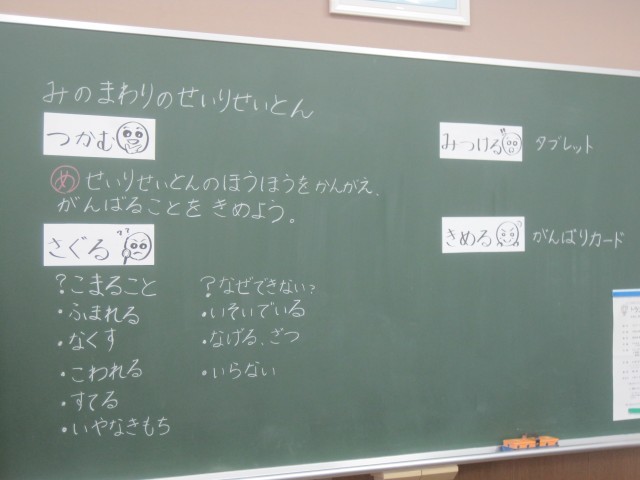 みのまわりのせいりせいとん
つかむ
め せいりせいとんのほうほうをかんがえ、
がんばることをきめよう。
さぐる
?こまること
・ふまれる
・なくす
・こわれる
・すてる
・いやなきもち
?なぜできない?
・いそいでいる
・なげる、ざつ
・いらない
みつける タブレット
きめる がんばりカード